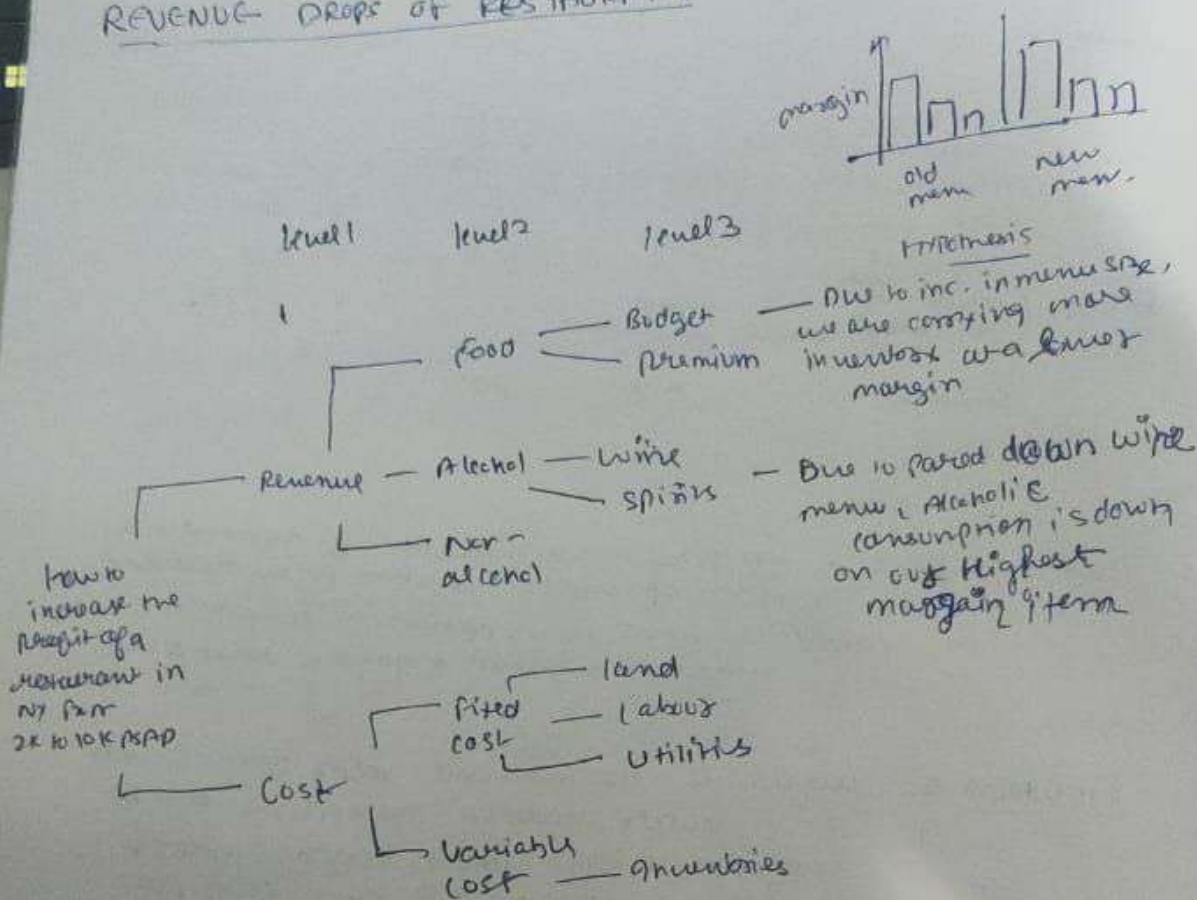 REVENUE DROPS OF
margin
old
menu
new
menu.
level1 level2 level3
HYPOTHESIS
Food
Budget
Premium
Due to inc. in menu size,
we are carrying more
inventory at a lower
margin
Revenue
Alcohol
wine
spirits
Due to pared down wine
menu, Alcoholic
consumption is down
on our Highest
margain item
Non-
alcohol
How to
increase the
profit of a
restaurant in
NY from
2K to 10K ASAP
Cost
Fixed
cost
land
Labour
Utilities
Variable
cost
Inventories